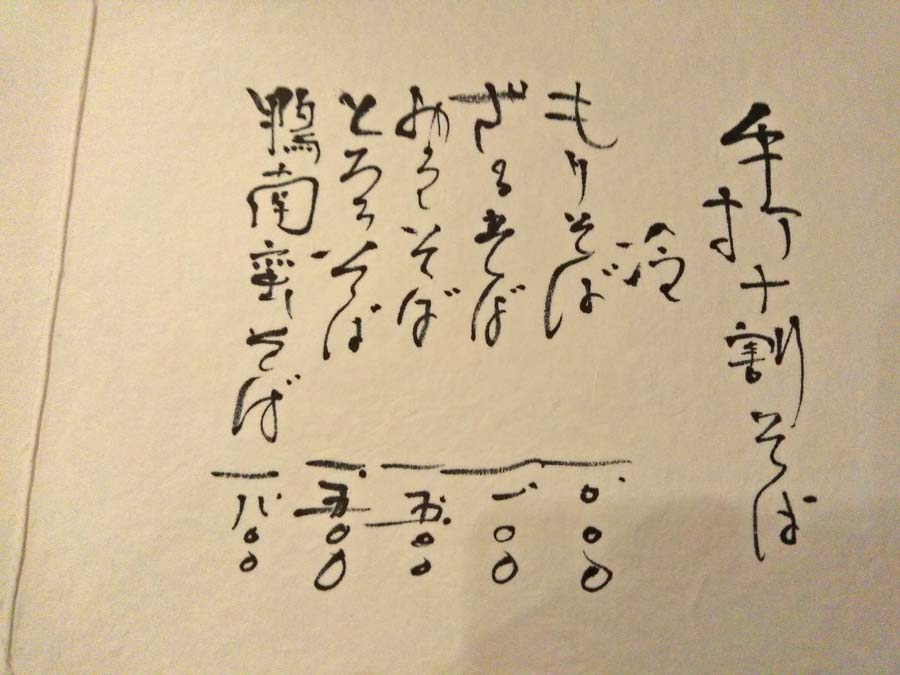 手打十割そば
冷
もりそば 一〇〇〇
ざるそば 一一〇〇
おろしそば 一五〇〇
とろろそば 一五〇〇
鴨南蛮そば 一八〇〇